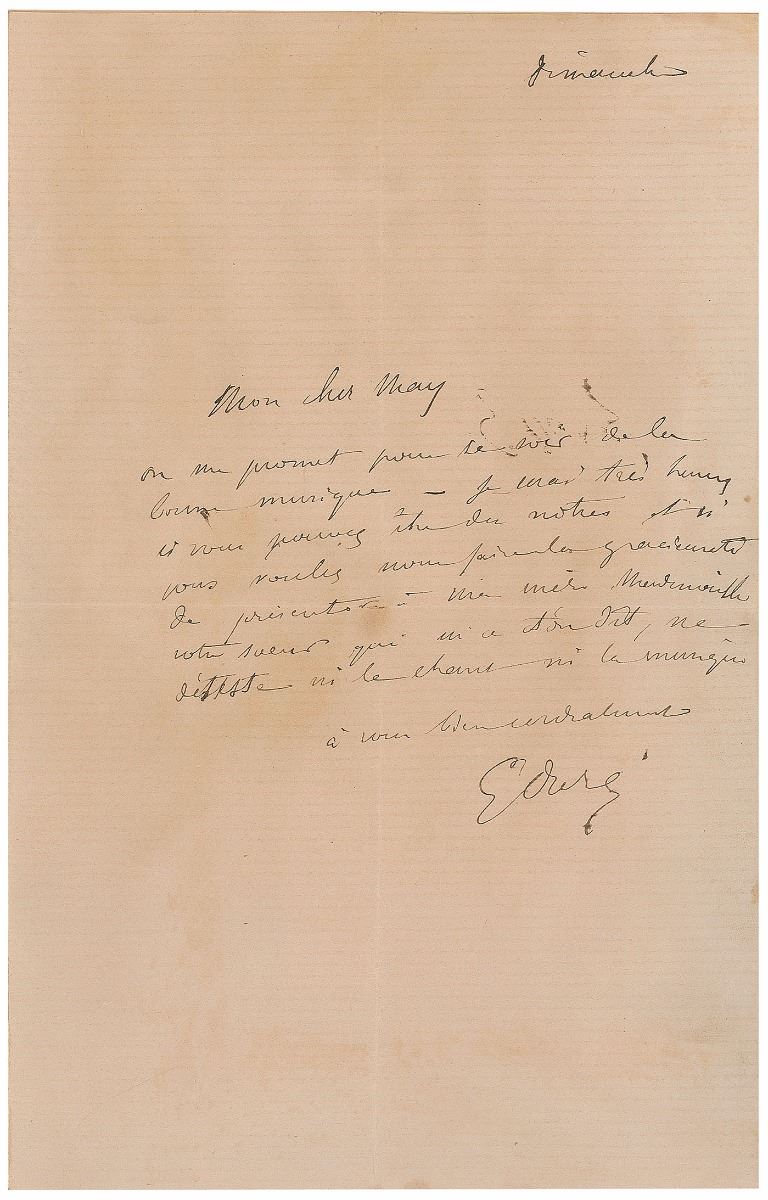 Dimanche
Mon cher May
on me promet pour ce soir de la
bonne musique – je serai très heureux
si vous pouvez être des nôtres et si
vous voulez nous faire la gracieuseté
de présenter à ma mère Mademoiselle
votre soeur qui m'a-t-on dit, ne
déteste ni le chant ni la musique
à vous bien cordialement
G Doré